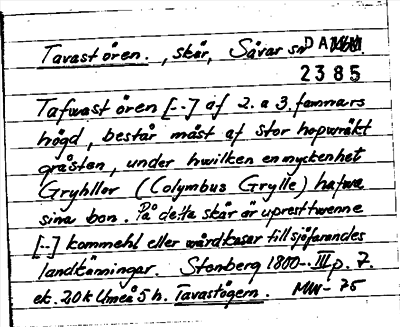 Tavastören., skär, Sävar sn DAUM
2385
Tafwast ören [--] af 2. a 3. famnars
högd, består mäst af stor hopwräkt
gråsten, under hwilken en myckenhet
Gryhllor (Colymbus Grylle) hafwa
sina bon. På detta skär är uprest twenne
[--] kommehl eller wårdkasar till sjöfarandes
landkänningar. Stenberg 1800-- III p. 7.
ek. 20k Umeå 5 h. Tavastögern. MW-75